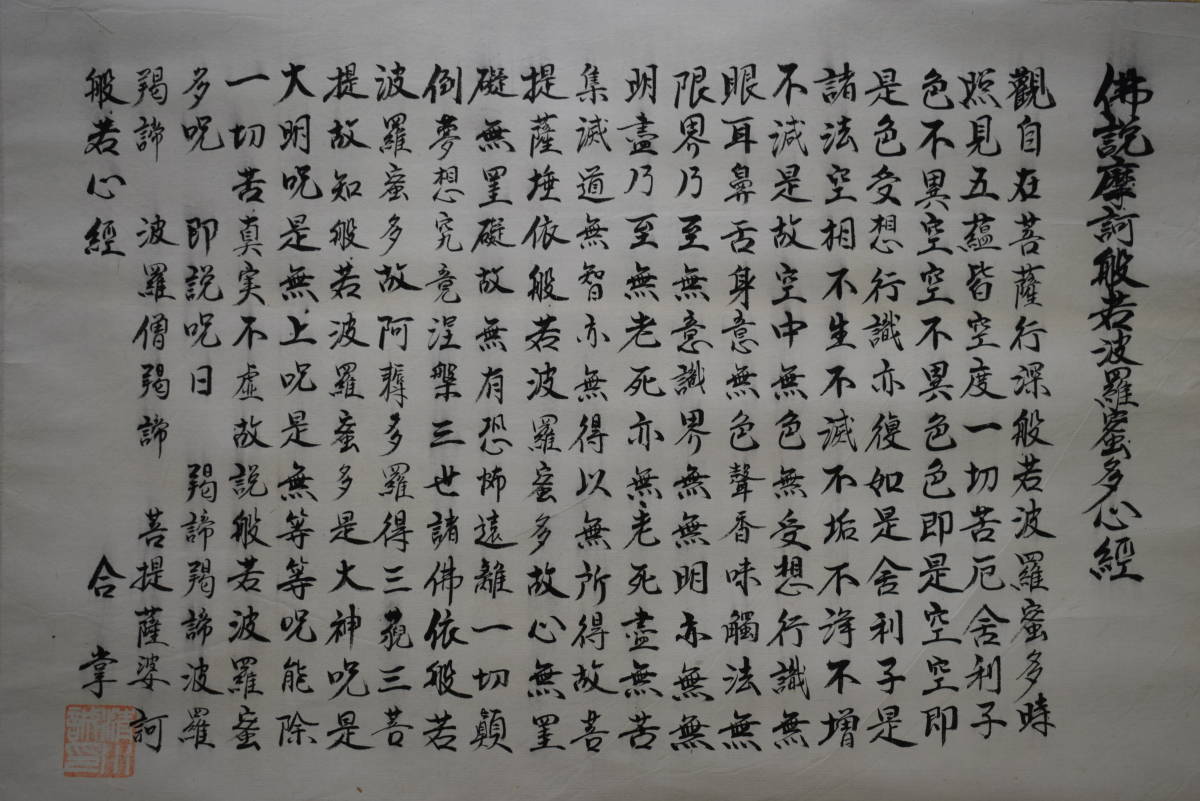 佛説摩訶般若波羅蜜多心經
觀自在菩薩行深般若波羅蜜多時
照見五蘊皆空度一切苦厄舍利子
色不異空空不異色色即是空空即
是色受想行識亦復如是舍利子是
諸法空相不生不滅不垢不淨不增
不減是故空中無色無受想行識無
眼耳鼻舌身意無色聲香味觸法無
限界乃至無意識界無無明亦無無
明盡乃至無老死亦無老死盡無苦
集滅道無智亦無得以無所得故菩
提薩埵依般若波羅蜜多故心無罣
礙無罣礙故無有恐怖遠離一切顛
倒夢想究竟涅槃三世諸佛依般若
波羅蜜多故阿耨多羅得三藐三菩
提故知般若波羅蜜多是大神呪是
大明呪是無上呪是無等等呪能除
一切苦真実不虛故説般若波羅蜜
多呪 即説呪日 羯諦羯諦波羅
羯諦 波羅僧羯諦 菩提薩婆訶
般若心經 合掌